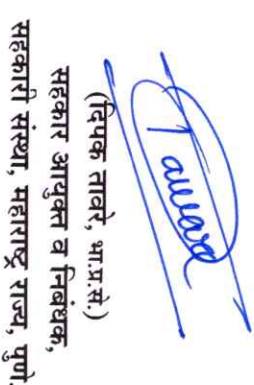 Tawara
(दिपक तावरे, भा.प्र.से.)
सहकार आयुक्त व निबंधक,
सहकारी संस्था, महाराष्ट्र राज्य, पुणे.